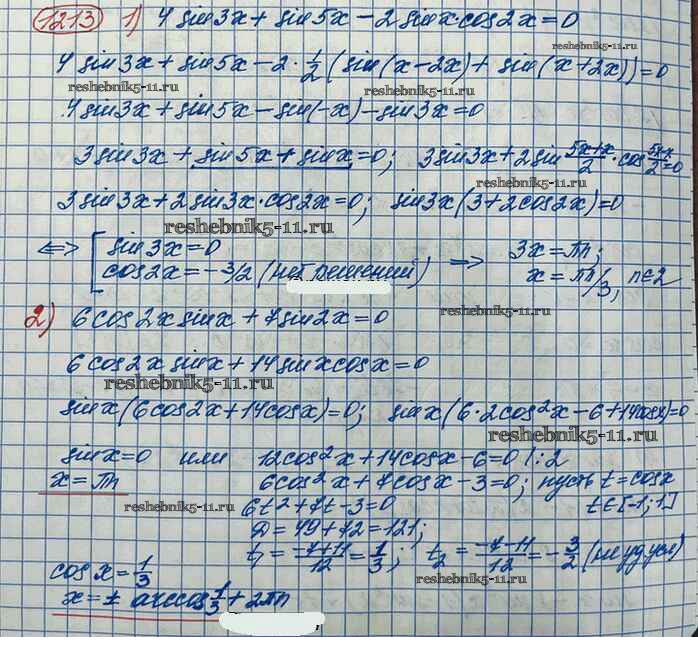 1213 1) 4 sin3x + sin5x - 2 sinx·cos2x = 0
4 sin3x + sin5x - 2·1/2(sin(x-2x) + sin(x+2x)) = 0
reshebnik5-11.ru
reshebnik5-11.ru
4sin3x + sin5x - sin(-x) - sin3x = 0
3sin3x + sin5x + sinx = 0; 3sin3x + 2sin (5x+x)/2 · cos (5x-x)/2 = 0
reshebnik5-11.ru
3sin3x + 2sin3x·cos2x = 0; sin3x(3+2cos2x) = 0
reshebnik5-11.ru
⇔ [ sin3x = 0
cos2x = -3/2 (нет решений) ⇒ 3x = πn;
x = πn/3, n∈Z
reshebnik5-11.ru
2) 6cos2x sinx + 7sin2x = 0
6cos2x sinx + 14sinx cosx = 0
reshebnik5-11.ru
sinx(6cos2x + 14cosx) = 0; sinx(6·2cos²x - 6 + 14cosx) = 0
reshebnik5-11.ru
sinx = 0 или 12cos²x + 14cosx - 6 = 0 |:2
x = πn 6cos²x + 7cosx - 3 = 0; пусть t = cosx
6t² + 7t - 3 = 0 t∈[-1;1]
reshebnik5-11.ru
reshebnik5-11.ru
D = 49 + 72 = 121;
t₁ = (-7+11)/12 = 1/3; t₂ = (-7-11)/12 = -3/2 (не уд. усл)
reshebnik5-11.ru
cosx = 1/3
x = ± arccos 1/3 + 2πn